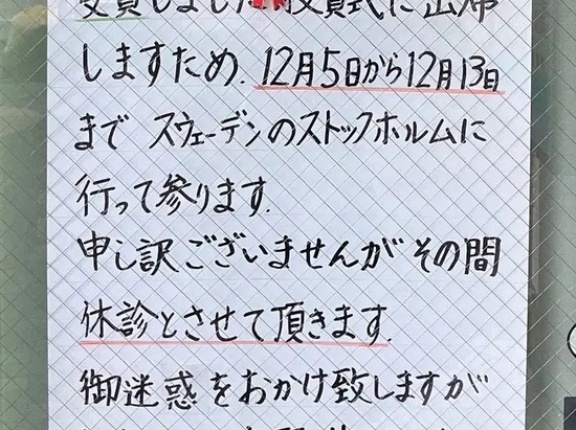 受賞しました授賞式に出席
しますため、12月5日から12月13日
まで スウェーデンのストックホルムに
行って参ります。
申し訳ございませんが その間
休診とさせて頂きます。
御迷惑をおかけ致しますが